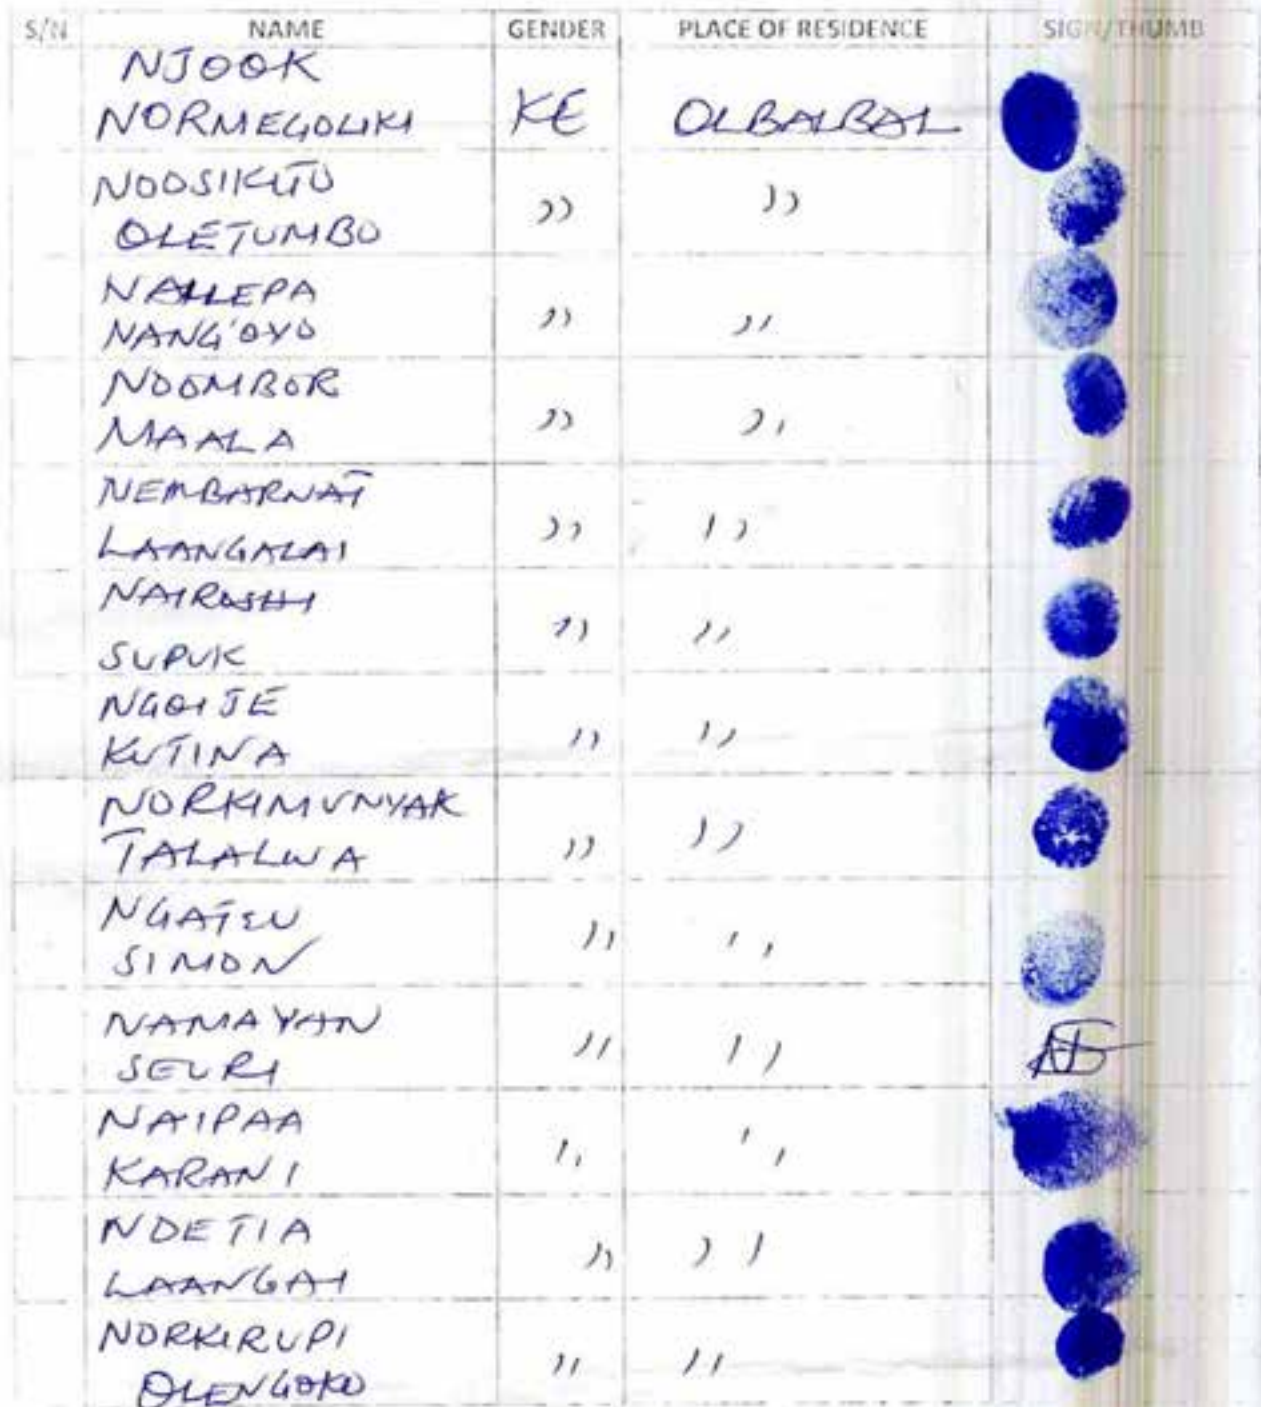 S/N NAME GENDER PLACE OF RESIDENCE SIGN/THUMB
NJOOK
NORMEGOLIKI KE OLBALBAL
NOOSIKITO
OLETUMBO ,, ,,
NALLEPA
NANG'OYO ,, ,,
NOOMBOR
MAALA ,, ,,
NEMBARNAT
LAANGALAI ,, ,,
NAIROSHI
SUPUK ,, ,,
NGOIJE
KUTINA ,, ,,
NORKIMUNYAK
TALALWA ,, ,,
NGATEU
SIMON ,, ,,
NAMAYAN
SEURI ,, ,, NS
NAIPAA
KARANI ,, ,,
NDETIA
LAANGAI ,, ,,
NORKIRUPI
OLENGOKO ,, ,,